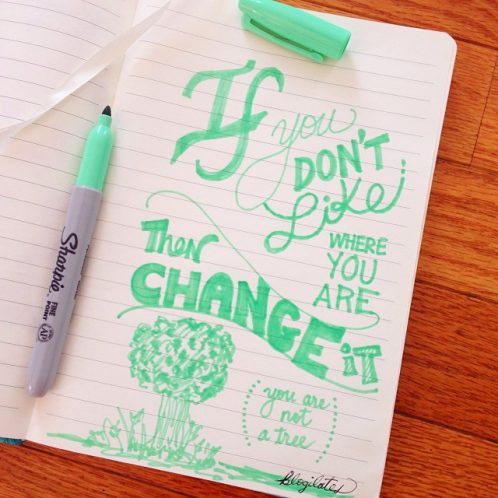 If you
DON'T
Like
WHERE
YOU
ARE
Then
CHANGE iT
(you are
not
a tree)
Blogilates
Sharpie
FINE
POINT
AP